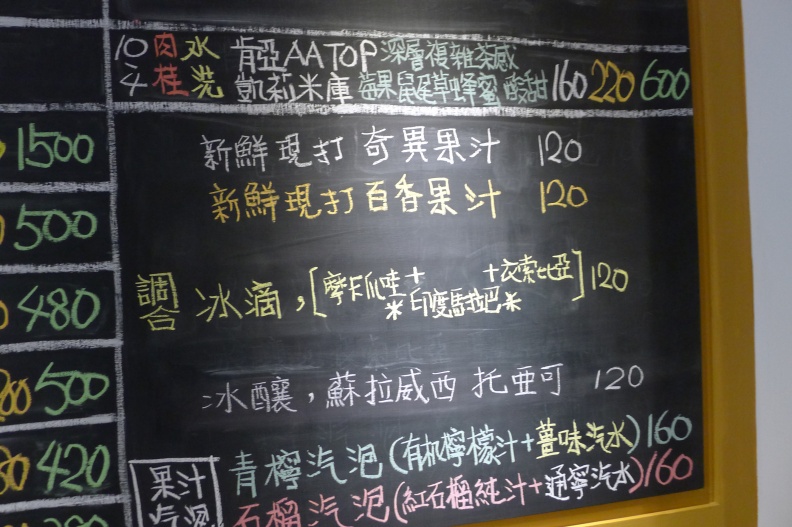 10/4 肉桂 水洗 肯亞AA TOP 深層複雜茶感
凱莉米庫 莓果鼠尾草蜂蜜酸甜 160 220 600
1500
新鮮現打 奇異果汁 120
新鮮現打百香果汁 120
500
調合 冰滴，[摩卡爪哇+ +衣索比亞] 120
*印度馬拉巴*
480
冰釀，蘇拉威西 托亜可 120
500
青檸汽泡(有机檸檬汁+薑味汽水) 160
420
果汁汽泡 石榴汽泡(紅石榴純汁+通寧汽水) 160